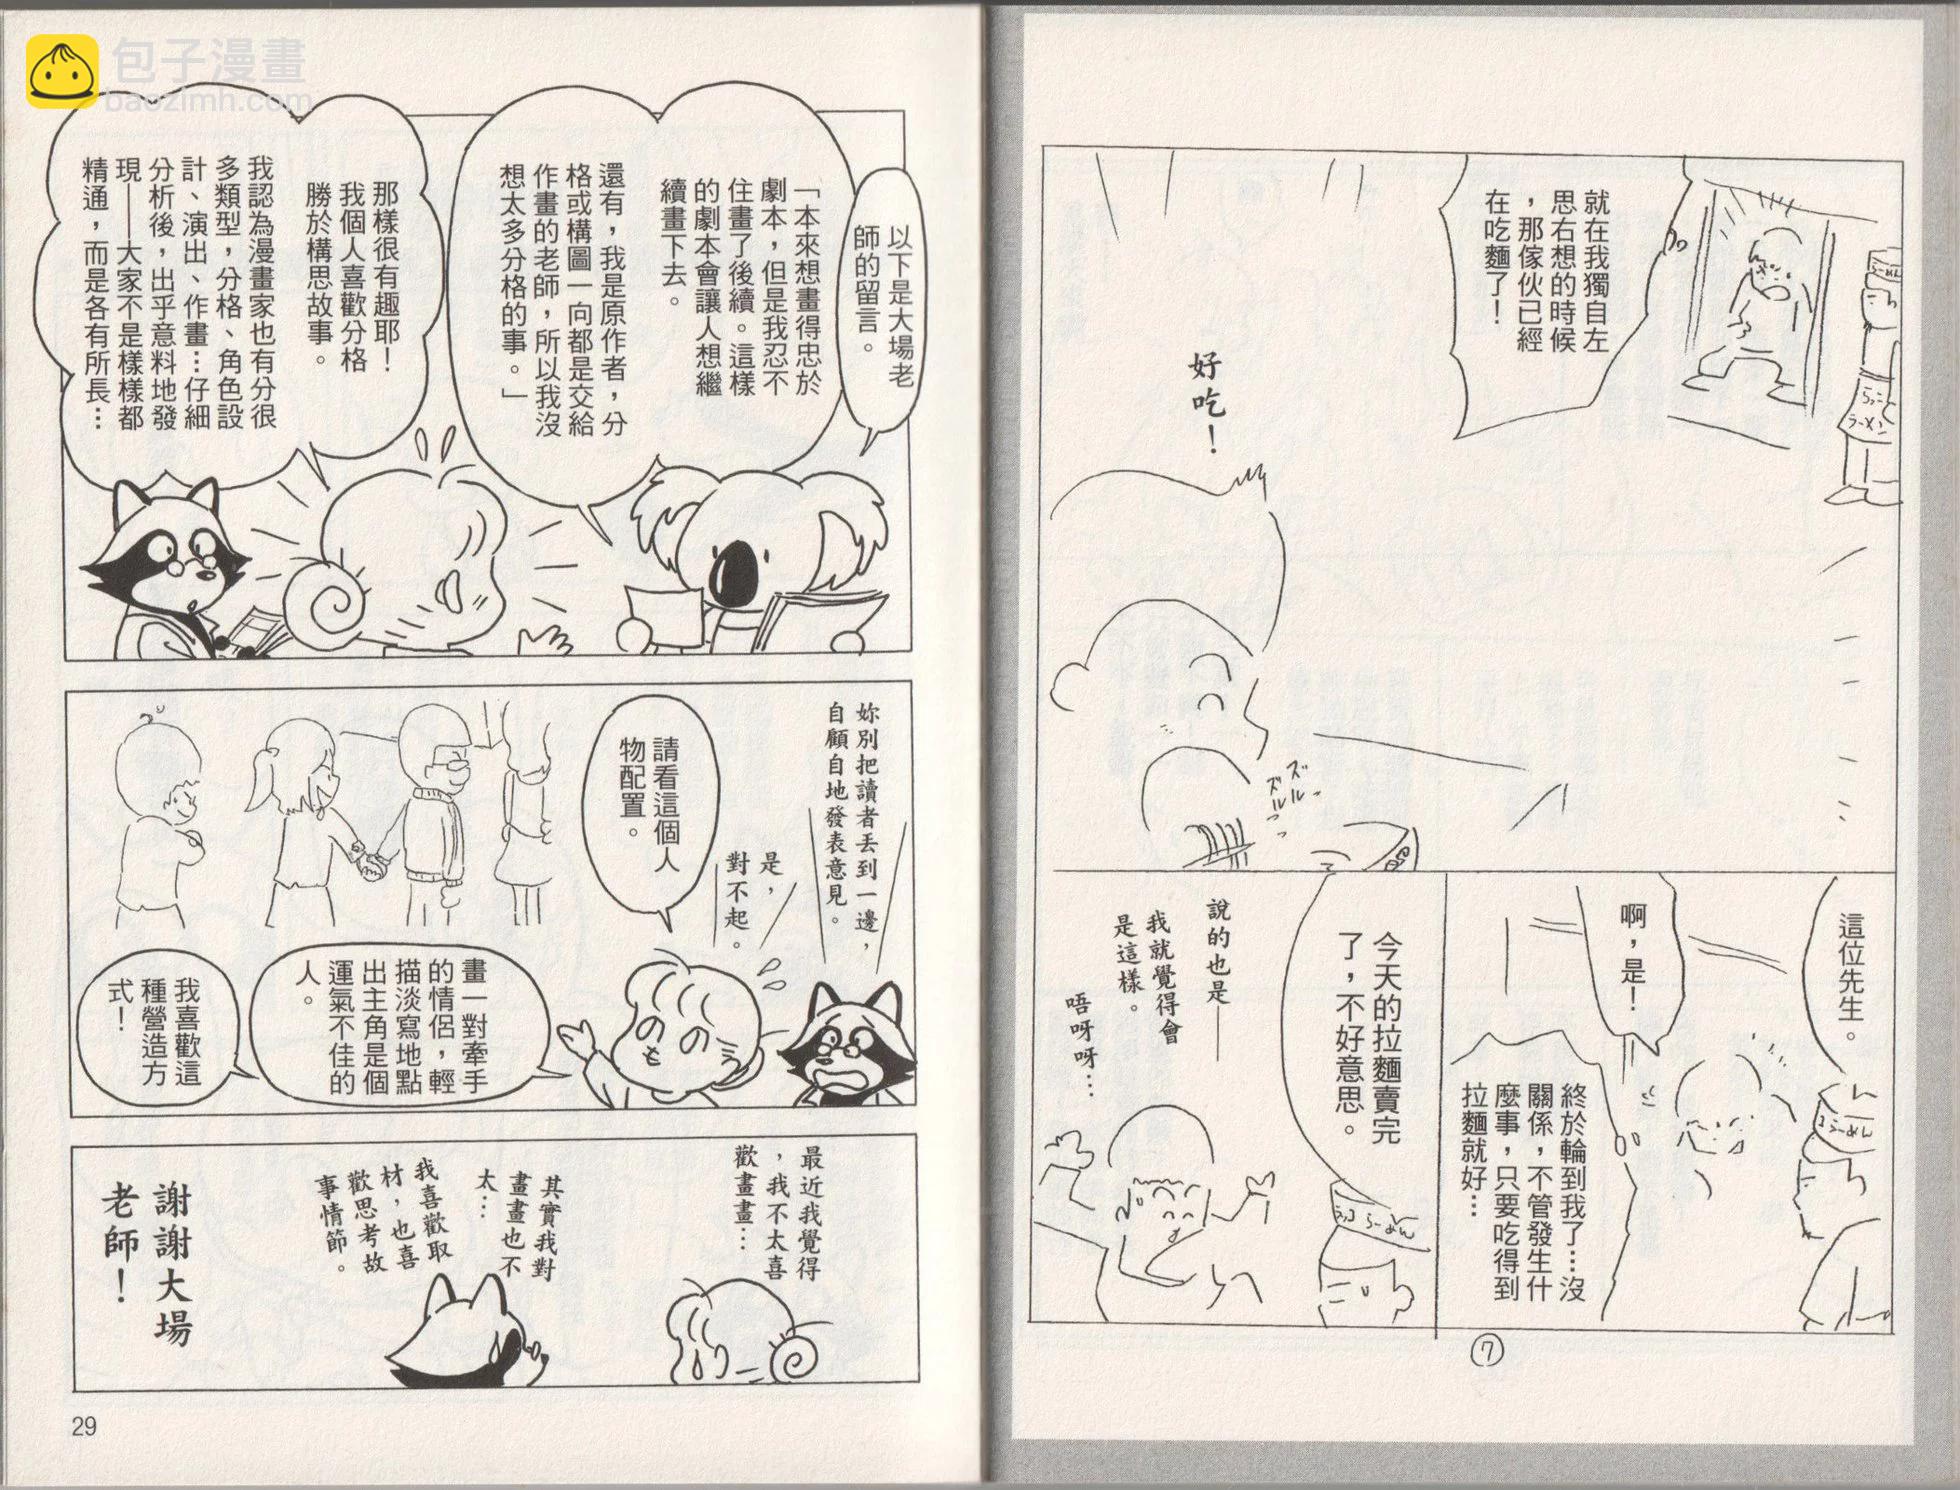 包子漫畫
baozimh.com
就在我獨自左
思右想的時候
，那傢伙已經
在吃麵了！
好吃！
ズルルーっ
ズルルっ
らーめん
らっこ
ラーメン
這位先生。
啊，是！
終於輪到我了…沒
關係，不管發生什
麼事，只要吃得到
拉麵就好…
らーめん
今天的拉麵賣完
了，不好意思。
らっこらーめん
說的也是——
我就覺得會
是這樣。
唔呀呀…
⑦
以下是大場老
師的留言。
「本來想畫得忠於
劇本，但是我忍不
住畫了後續。這樣
的劇本會讓人想繼
續畫下去。
還有，我是原作者，分
格或構圖一向都是交給
作畫的老師，所以我沒
想太多分格的事。」
那樣很有趣耶！
我個人喜歡分格
勝於構思故事。
我認為漫畫家也有分很
多類型，分格、角色設
計、演出、作畫…仔細
分析後，出乎意料地發
現——大家不是樣樣都
精通，而是各有所長…
妳別把讀者丟到一邊，
自顧自地發表意見。
是，
對不起。
請看這個人
物配置。
畫一對牽手
的情侶，輕
描淡寫地點
出主角是個
運氣不佳的
人。
我喜歡這
種營造方
式！
最近我覺得
，我不太喜
歡畫畫…
其實我對
畫畫也不
太…
我喜歡取
材，也喜
歡思考故
事情節。
謝謝大場
老師！
29